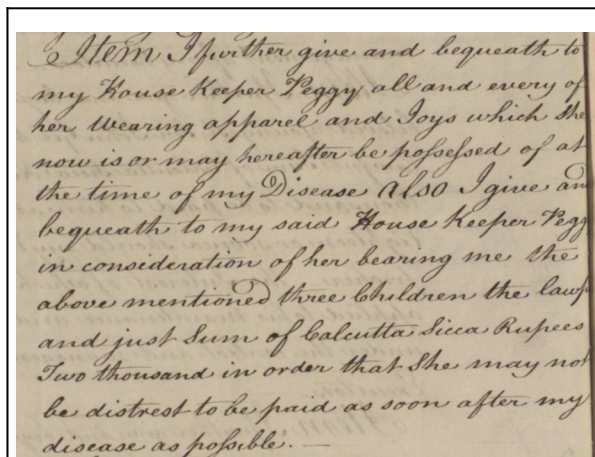 Item I further give and bequeath to
my House Keeper Peggy all and every of
her Wearing apparel and Joys which She
now is or may hereafter be possessed of at
the time of my Disease also I give an
bequeath to my said House Keeper Pegg
in consideration of her bearing me the
above mentioned three Children the lawf
and just Sum of Calcutta Sicca Rupees
Two thousand in order that She may not
be distrest to be paid as soon after my
disease as possible. —